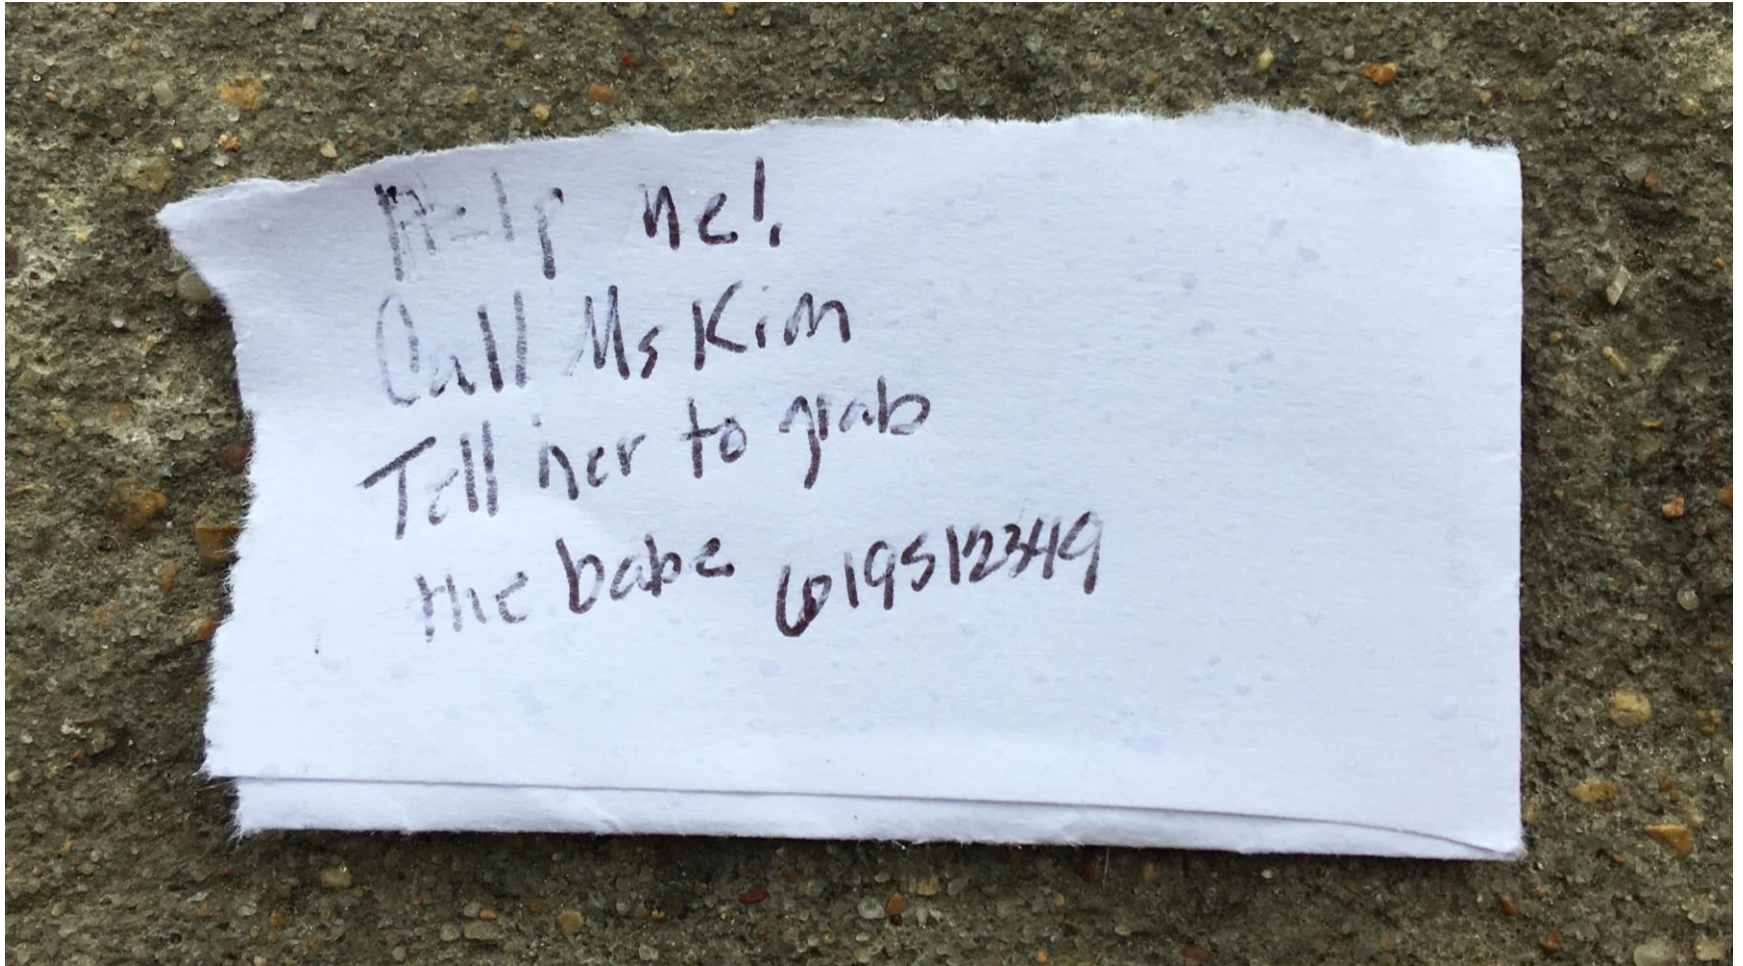 Help me!
Call Ms Kim
Tell her to grab
the babe 619512349